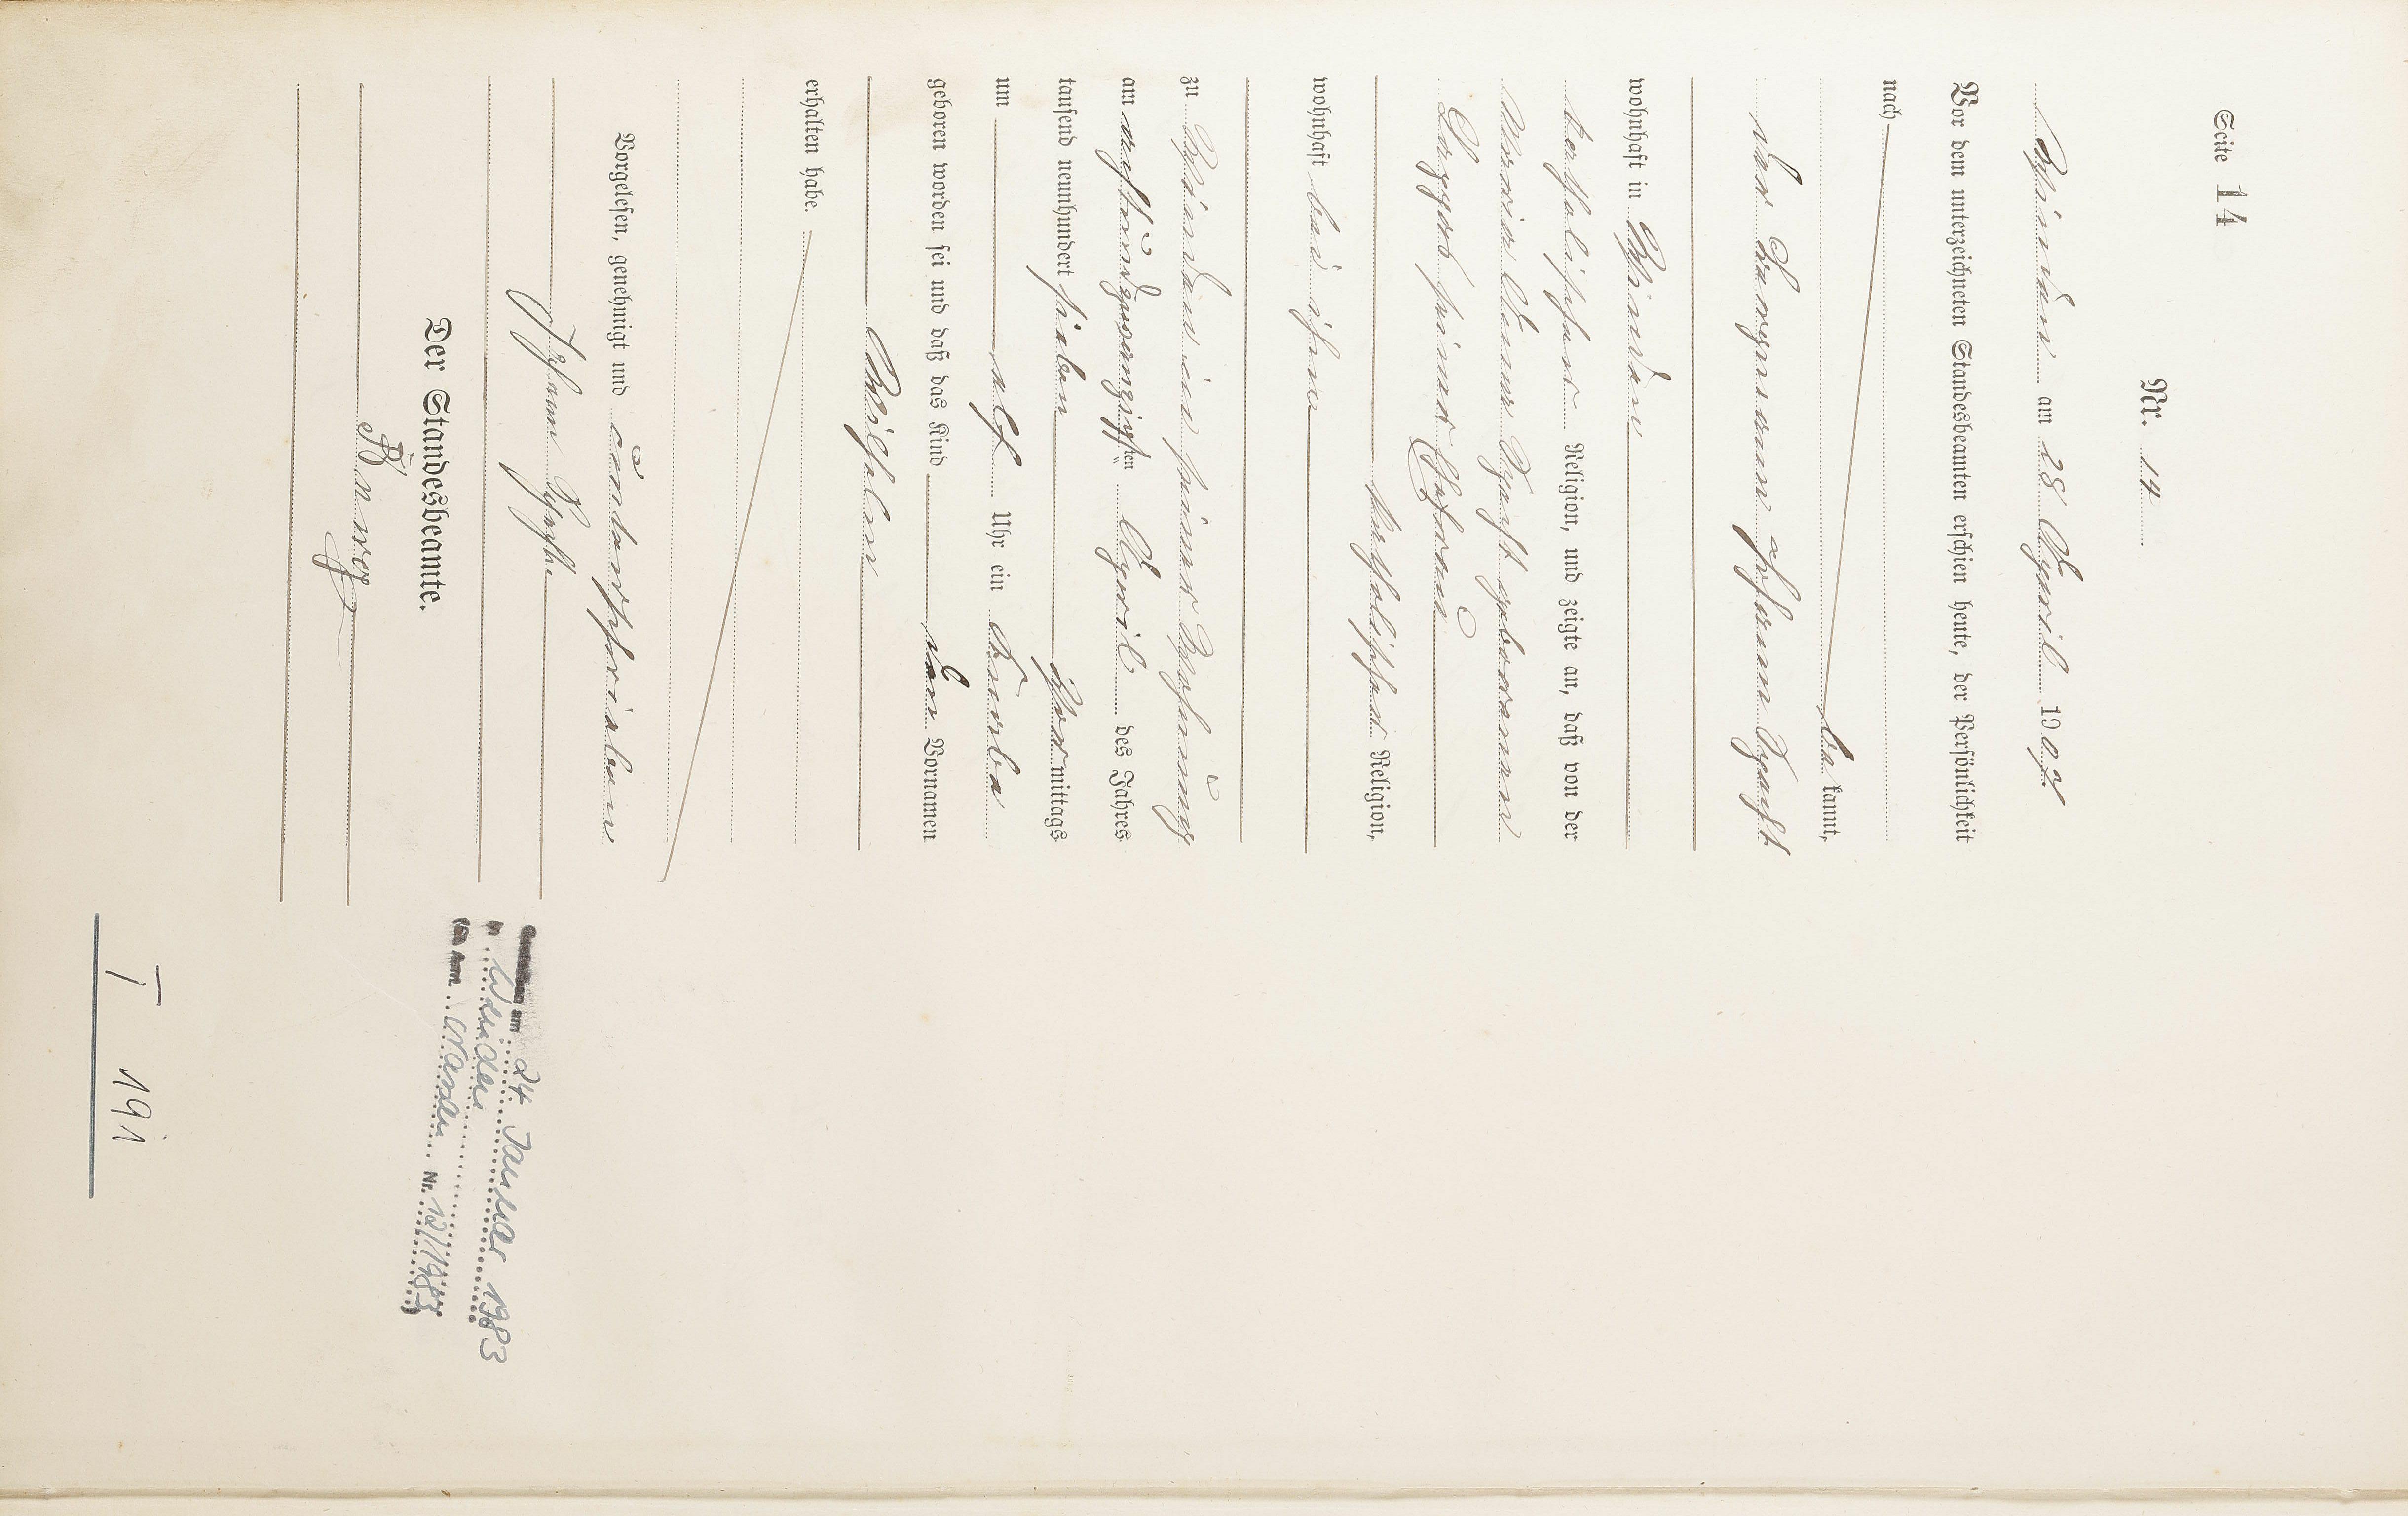 Seite 14
Nr. 14
Winden am 28 April 1907.
Vor dem unterzeichneten Standesbeamten erschien heute, der Persönlichkeit
nach
be kannt,
der Bergmann Johann
wohnhaft in Winden
katholischer Religion, und zeigte an, daß von der
Maria Anna geborenen
seiner Ehefrau
katholischer Religion,
wohnhaft bei ihm
zu Winden in seiner Wohnung
am achtundzwanzigsten April des Jahres
tausend neunhundert sieben Vor mittags
um elf Uhr ein Knabe
geboren worden sei und daß das Kind den Vornamen
Wilhelm
erhalten habe.
Vorgelesen, genehmigt und unterschrieben
Johann
Der Standesbeamte.
am 24. Januar 1983
in Weinden
Nassau Nr. 12/1983)
I 191